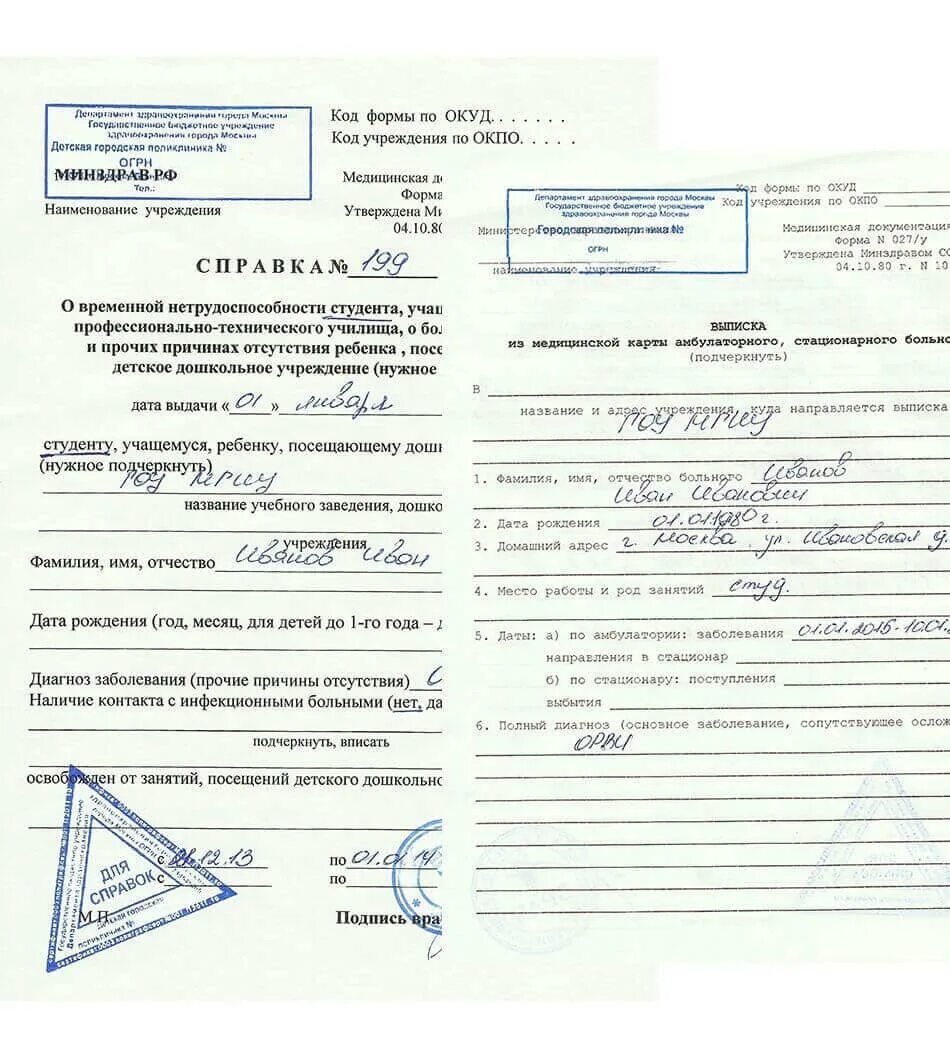 Департамент здравоохранения города Москвы
Государственное бюджетное учреждение
здравоохранения города Москвы
Детская городская поликлиника №
ОГРН
МИНЗДРАВ РФ
Тел.:
Наименование учреждения
Код формы по ОКУД. . . . . . .
Код учреждения по ОКПО. . . . .
Медицинская до
Форма
Утверждена Ми
04.10.80
СПРАВКА № 199
О временной нетрудоспособности студента, учащ
профессионально-технического училища, о бол
и прочих причинах отсутствия ребенка , посе
детское дошкольное учреждение (нужное
дата выдачи « 01 » января
студенту, учащемуся, ребенку, посещающему дошк
(нужное подчеркнуть)
ГОУ МГИУ
название учебного заведения, дошко
учреждения
Фамилия, имя, отчество Иванов Иван
Дата рождения (год, месяц, для детей до 1-го года – д
Диагноз заболевания (прочие причины отсутствия) О
Наличие контакта с инфекционными больными (нет, да
подчеркнуть, вписать
освобожден от занятий, посещений детского дошкольно
с 12.13 по 01.01.14
с по
ДЛЯ
СПРАВОК
М.П.
Подпись вра
Код формы по ОКУД
Код учреждения по ОКПО
Департамент здравоохранения города Москвы
Государственное бюджетное учреждение
здравоохранения города Москвы
Городская поликлиника №
ОГРН
наименование учреждения
Медицинская документация
Форма N 027/у
Утверждена Минздравом СС
04.10.80 г. N 10
ВЫПИСКА
из медицинской карты амбулаторного, стационарного больно
(подчеркнуть)
В
название и адрес учреждения, куда направляется выписка
ГОУ МГИУ
1. Фамилия, имя, отчество больного Иванов
Иван Иванович
2. Дата рождения 01.01.1980 г.
3. Домашний адрес г. Москва, ул. Ивановская д.
4. Место работы и род занятий студ.
5. Даты: а) по амбулатории: заболевания 01.01.2015-10.01.2
направления в стационар
б) по стационару: поступления
выбытия
6. Полный диагноз (основное заболевание, сопутствующее ослож
ОРВИ